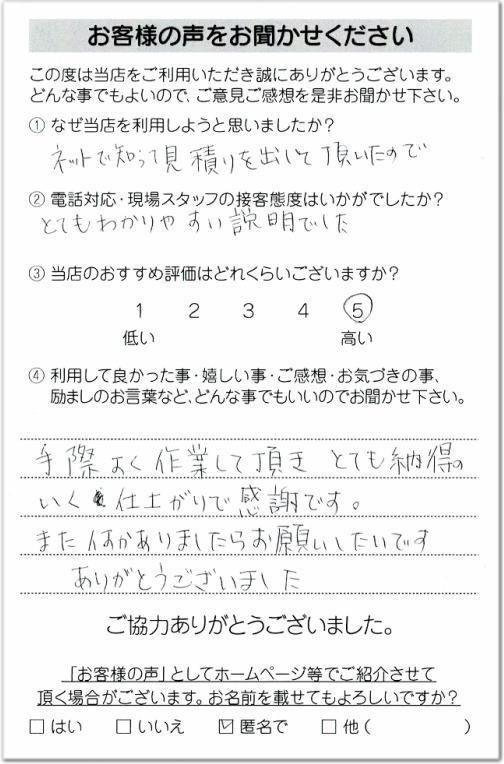 お客様の声をお聞かせください
この度は当店をご利用いただき誠にありがとうございます。
どんな事でもよいので、ご意見ご感想を是非お聞かせ下さい。
① なぜ当店を利用しようと思いましたか？
ネットで知って見積りを出して頂いたので
② 電話対応・現場スタッフの接客態度はいかがでしたか？
とてもわかりやすい説明でした
③ 当店のおすすめ評価はどれくらいございますか？
1 2 3 4 5
低い 高い
④ 利用して良かった事・嬉しい事・ご感想・お気づきの事、
励ましのお言葉など、どんな事でもいいのでお聞かせ下さい。
手際よく作業して頂き とても納得の
いく仕上がりで感謝です。
また何かありましたらお願いしたいです
ありがとうございました
ご協力ありがとうございました。
「お客様の声」としてホームページ等でご紹介させて
頂く場合がございます。お名前を載せてもよろしいですか？
□ はい □ いいえ ☑ 匿名で □ 他（ ）